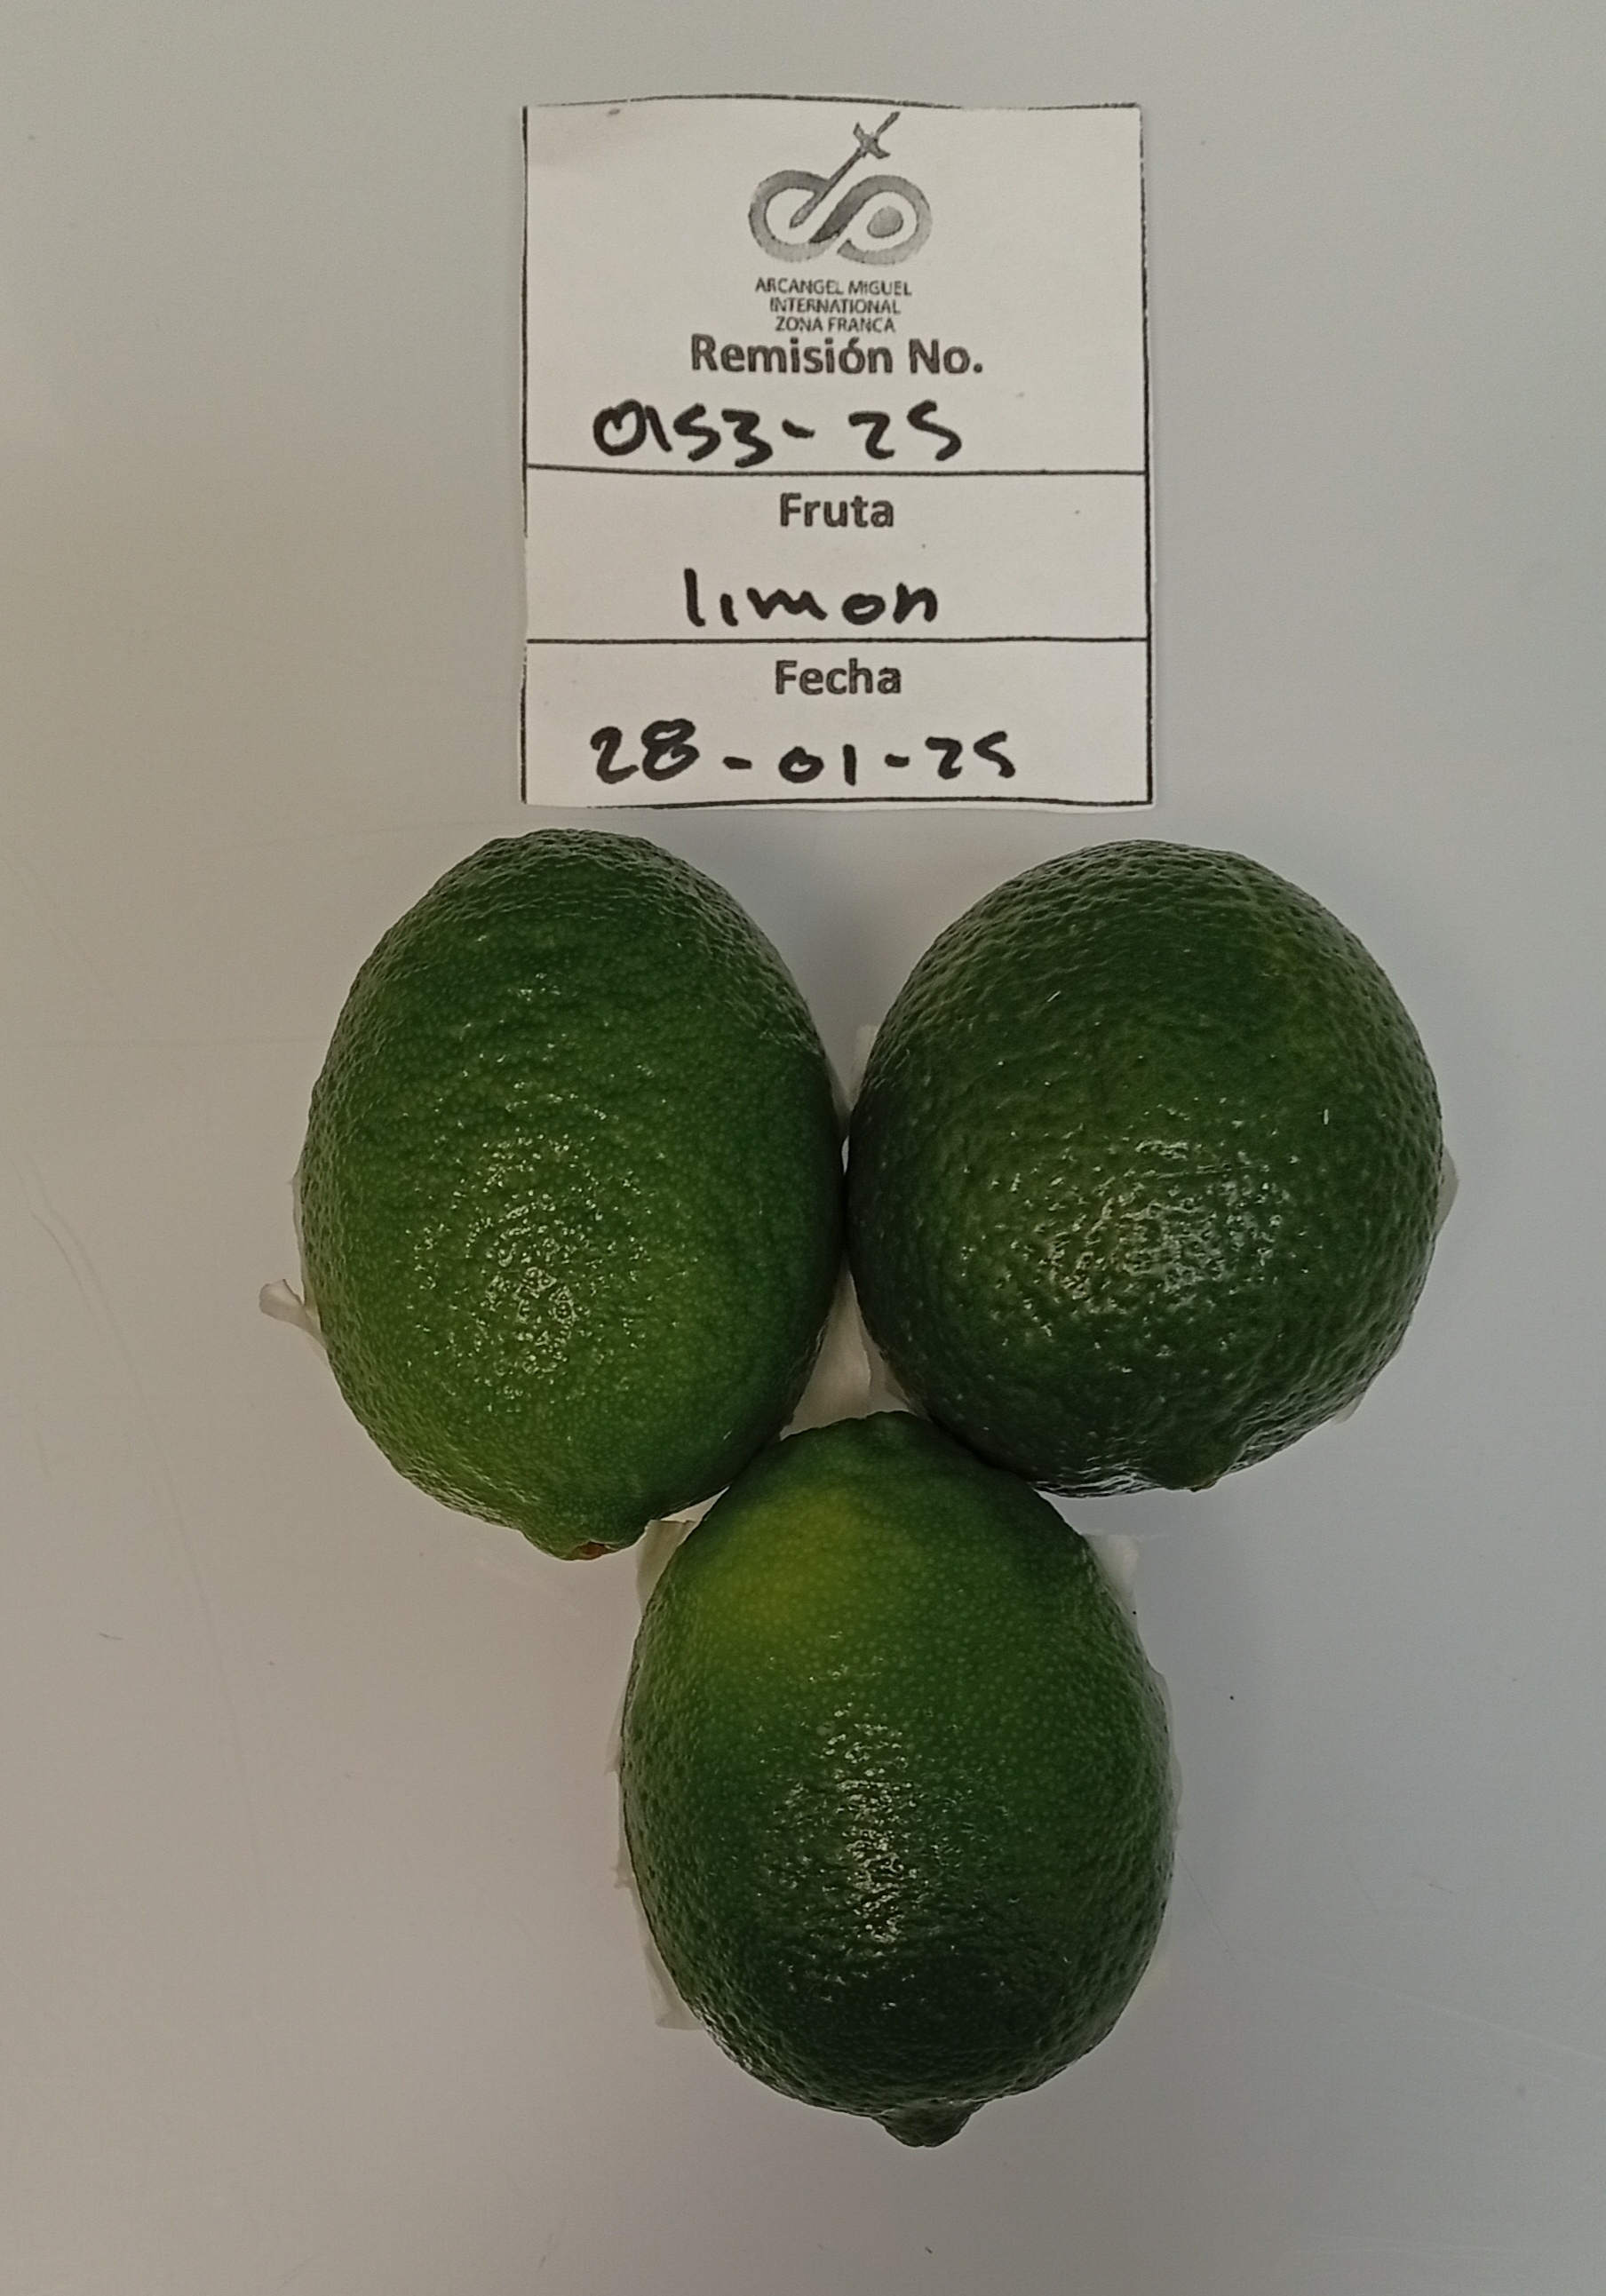 ARCANGEL MIGUEL
INTERNATIONAL
ZONA FRANCA
Remisión No.
0153-25
Fruta
limon
Fecha
28-01-25